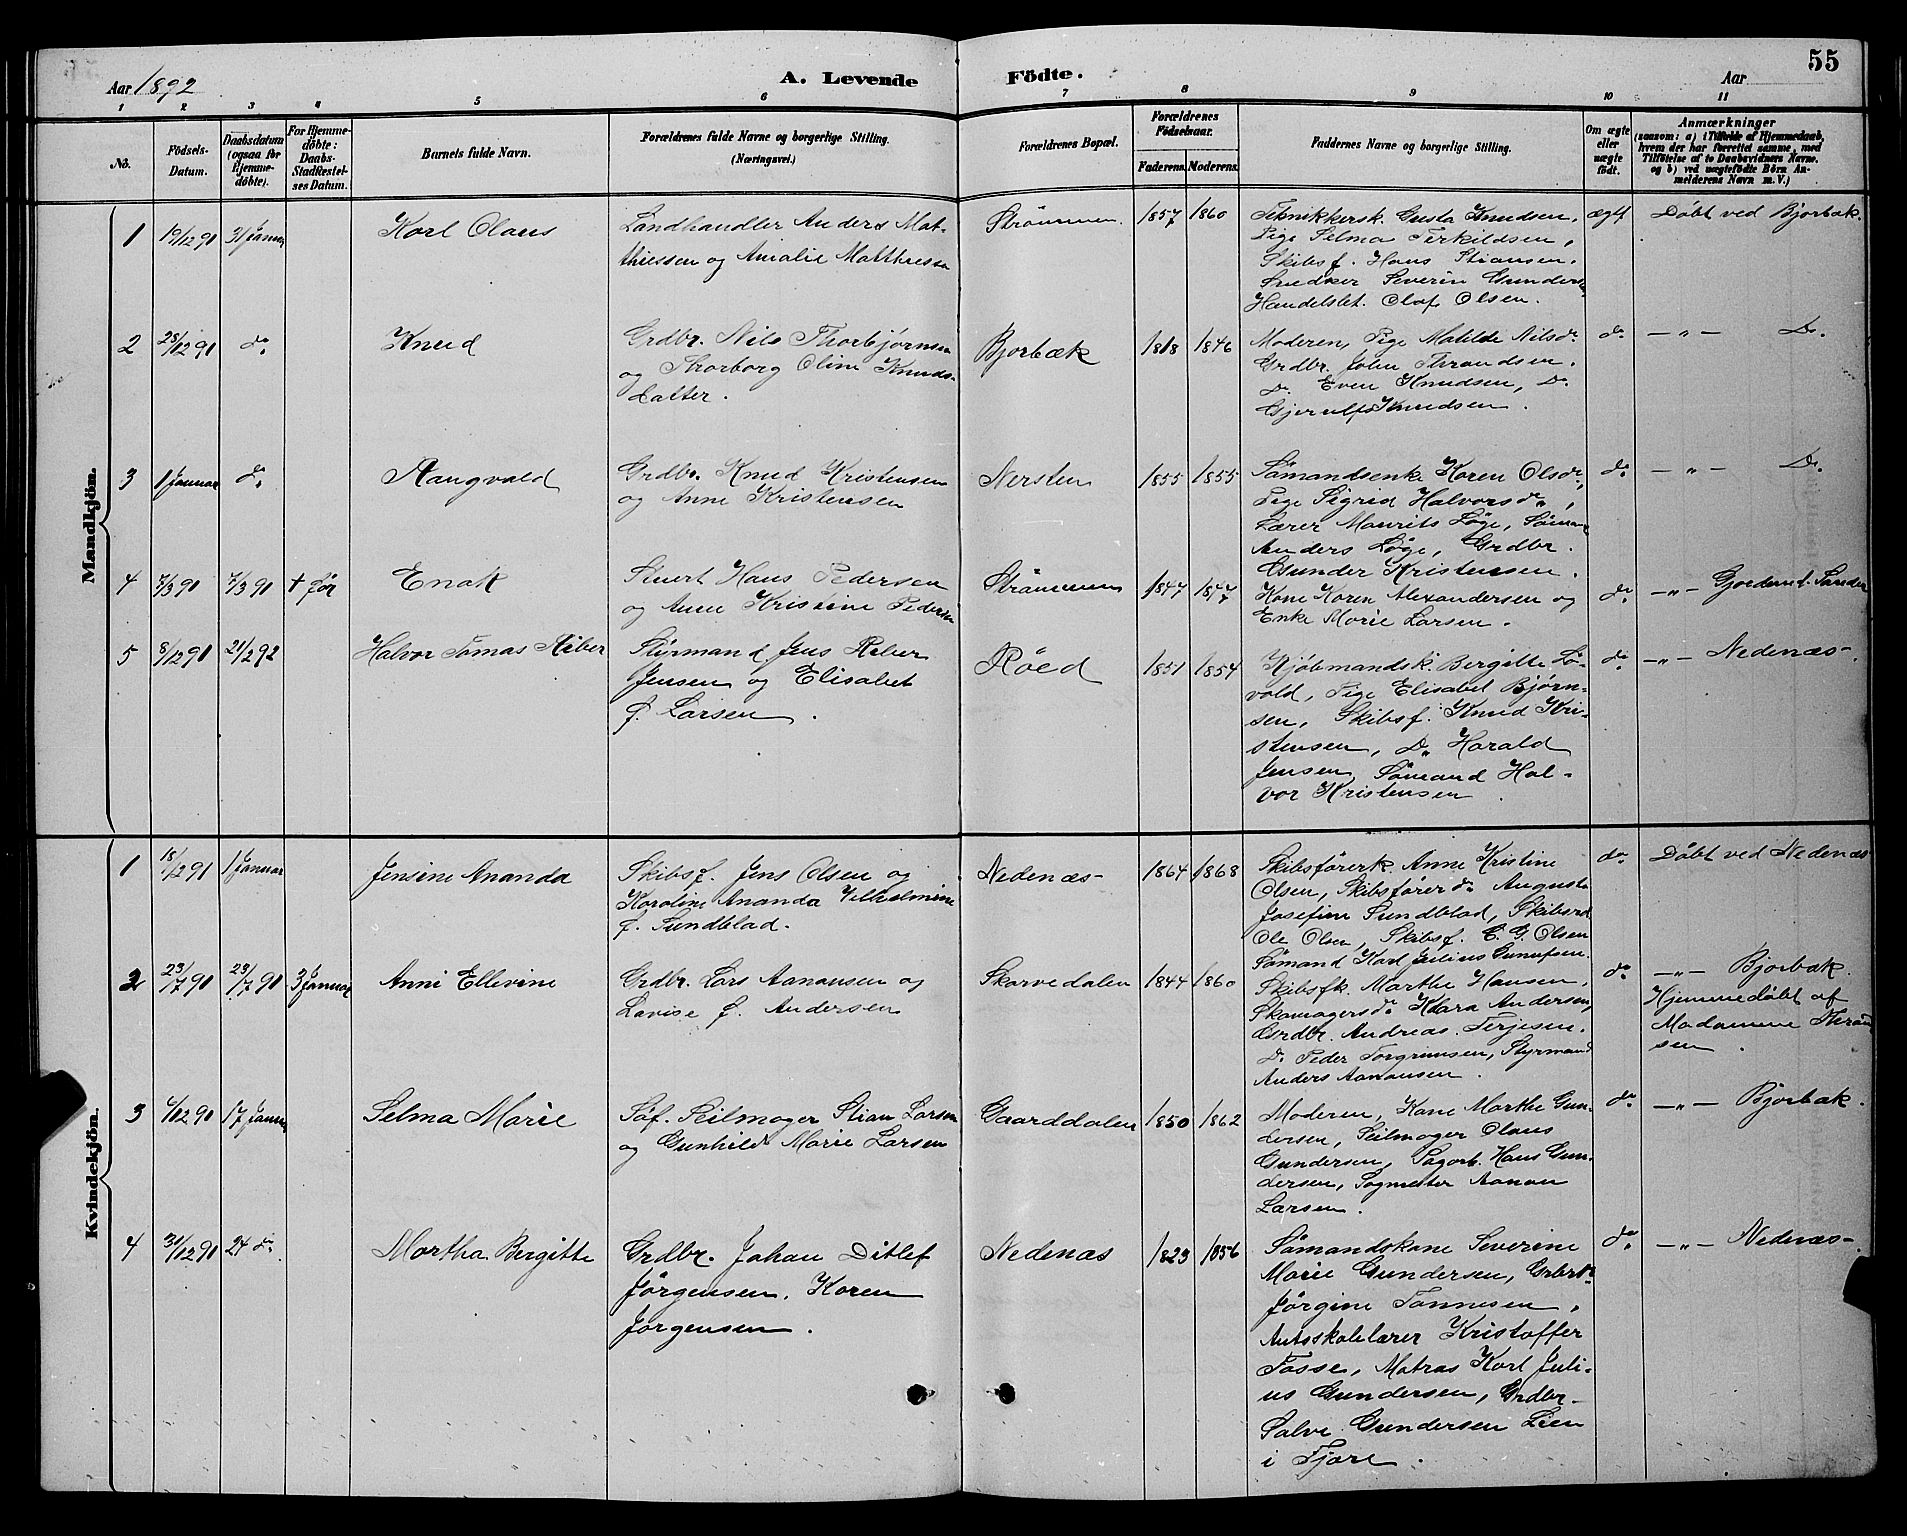 55
Aar 1892
A. Levende Födte.
Aar
1 2 3 4 5 6 7 8 9 10 11
No.
Födsels-Datum.
Daabsdatum (ogsaa for Hjemmedöbte).
For Hjemmedöbte: Daabs-Stadfæstelses Datum.
Barnets fulde Navn.
Forældrenes fulde Navne og borgerlige Stilling. (Næringsvei.)
Forældrenes Bopæl.
Forældrenes Födselsaar.
Faderens. Moderens.
Faddernes Navne og borgerlige Stilling.
Om ægte eller uægte födt.
Anmærkninger
(saasom: a) i Tilfælde af Hjemmedaab,
hvem der har forrettet samme, med
Tilföielse af to Daabsvidners Navne.
og b) ved uægtefödte Börn An-
melderens Navn m. V.)
Mandkjön.
1 19/12 91 31 Januar Karl Olaus
Landhandler Anders Mat-
thiessen og Amalie Matthiessen
Strömmen. 1857 1860
Gusta Knudsen,
Pige Selma Terkildsen,
Skibsf. Hans Stiansen.
Snedker Severin Gundersen
Handelsbet. Olaf Olsen.
ægte Döbt ved Bjorbæk.
2 28/12 91 do Knud
Grdbr. Nils Thorbjørnsen
og Thorborg Oline Knuds-
datter.
Bjorbæk 1846
Moderen, Pige Matilde Nilsdr
Grdbr. John Throndsen.
Do Even Knudsen, Do
Gjerulf Knudsen.
do — „ — Do
3 1 Januar do Aangvald
Grdbr. Knud Kristensen
og Anne Kristensen
Nersten 1855 1855
Sömandsenke Karen Olsdr,
Pige Sigrid Halvorsdr,
Lærer Maurits Løge, Sömand
Anders Løge, Grdbr.
Gunder Kristensen.
do — „ — Do
4 7/3 90 7/3 90 † før Enok
Hans Pedersen
og Anne Kristine Pedersen
Strömmen 1847 1847
Kone Karen Alexandersen og
Enke Marie Larsen.
do — „ —
5 8/12 91 21/2 92 Halvor Tomas Reber
Styrmand Jens Reber
Jensen og Elisabet
f. Larsen.
Röed 1851 1854
Kjöbmandsk. Bergitte Lö-
vold, Pige Elisabet Björn-
sen, Skibsf. Knud Kri-
stensen, Do Harald
Jensen, Sömand Hal-
vor Kristensen.
do — „ — Nedenæs.
Kvindekjön.
1 18/12 91 1 Januar Jensine Ananda
Skibsf. Jens Olsen og
Karoline Ananda Vilhelmine
f. Sundblad.
Nedenæs 1864 1868
Skibsförerk. Anne Kristine
Olsen, Skibsförerdr Augusta
Josefine Sundblad,
Ole Olsen, Skibsf. C. G. Olsen
Sömand Karl Julius
do Döbt ved Nedenæs
2 23/7 90 23/7 90 3 Januar Anni Ellevine
Grdbr. Lars Aanansen og
Lavise f. Andersen
Skarvedalen 1844 1860
Skibsfk. Marthe Hansen,
Skomagersdr Klara Andersen,
Grdbr. Andreas Terjesen.
Do Peder Torgrimsen, Styrmand
Anders Aanansen.
do — „ — Bjorbæk.
Hjemmedöbt af
Madamme Thrond-
sen.
3 17 Januar Selma Marie
Seilmager Stian Larsen
og Gunhild Marie Larsen
Gaarddalen 1850 1862
Moderen, Kone Marthe Gun-
dersen, Seilmager Olaus
Gundersen, Hans Gun-
dersen, Sagmester Aanon
Larsen.
do — „ — Bjorbæk.
4 31/12 91 24 do Martha Bergitte
Grdbr. Johan Ditlef
Jörgensen, Karen
Jörgensen.
Nedenæs 1823 1856
Sömandskone Severine
Marie Gundersen,
Jörgine Tönnesen,
Amtsskolelærer Kristoffer
Tosse, Matros Karl Juli-
us Gundersen, Grdbr-
Salve Gundersen Lien
i Fjære.
do — „ — Nedenæs-